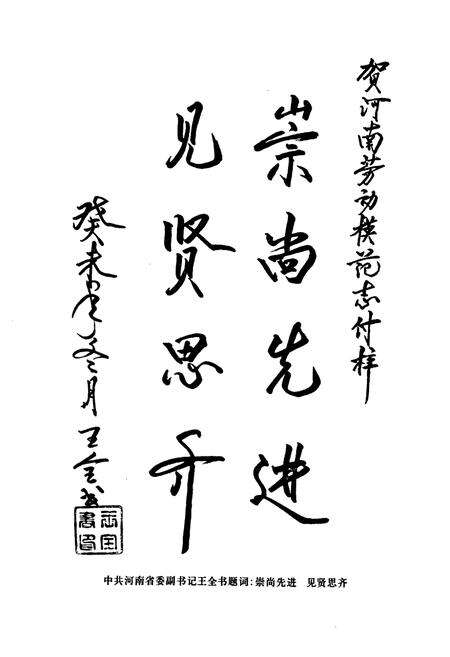 贺河南劳动模范志付梓
崇尚先进
见贤思齐
癸未年冬月 王全书
王全书印
中共河南省委副书记王全书题词:崇尚先进 见贤思齐